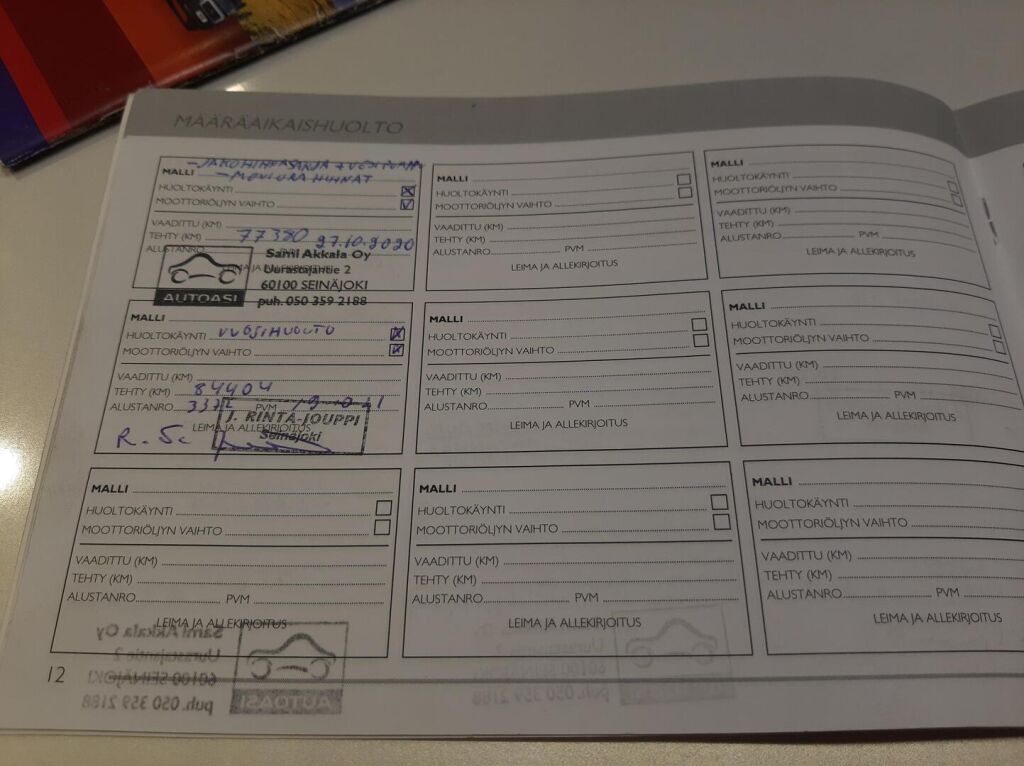 MÄÄRÄAIKAISHUOLTO
- JAKOHIHNASARJA + VESIPUMPPU
MALLI - MONIURA HIHNAT
HUOLTOKÄYNTI
MOOTTORIÖLJYN VAIHTO
VAADITTU (KM)
TEHTY (KM) 77380 27.10.2020
ALUSTANRO PVM
LEIMA JA ALLEKIRJOITUS
AUTOASI
Sami Akkala Oy
Uurastajantie 2
60100 SEINÄJOKI
puh. 050 359 2188
MALLI
HUOLTOKÄYNTI
MOOTTORIÖLJYN VAIHTO
VAADITTU (KM)
TEHTY (KM)
ALUSTANRO PVM
LEIMA JA ALLEKIRJOITUS
MALLI
HUOLTOKÄYNTI
MOOTTORIÖLJYN VAIHTO
VAADITTU (KM)
TEHTY (KM)
ALUSTANRO PVM
LEIMA JA ALLEKIRJOITUS
MALLI
HUOLTOKÄYNTI VUOSIHUOLTO
MOOTTORIÖLJYN VAIHTO
VAADITTU (KM)
TEHTY (KM) 84404
ALUSTANRO PVM
LEIMA JA ALLEKIRJOITUS
J. RINTA-JOUPPI
Seinäjoki
MALLI
HUOLTOKÄYNTI
MOOTTORIÖLJYN VAIHTO
VAADITTU (KM)
TEHTY (KM)
ALUSTANRO PVM
LEIMA JA ALLEKIRJOITUS
MALLI
HUOLTOKÄYNTI
MOOTTORIÖLJYN VAIHTO
VAADITTU (KM)
TEHTY (KM)
ALUSTANRO PVM
LEIMA JA ALLEKIRJOITUS
MALLI
HUOLTOKÄYNTI
MOOTTORIÖLJYN VAIHTO
VAADITTU (KM)
TEHTY (KM)
ALUSTANRO PVM
LEIMA JA ALLEKIRJOITUS
MALLI
HUOLTOKÄYNTI
MOOTTORIÖLJYN VAIHTO
VAADITTU (KM)
TEHTY (KM)
ALUSTANRO PVM
LEIMA JA ALLEKIRJOITUS
MALLI
HUOLTOKÄYNTI
MOOTTORIÖLJYN VAIHTO
VAADITTU (KM)
TEHTY (KM)
ALUSTANRO PVM
LEIMA JA ALLEKIRJOITUS
Sami Akkala Oy
Uurastajantie 2
60100 SEINÄJOKI
puh. 050 359 2188
AUTOASI
12